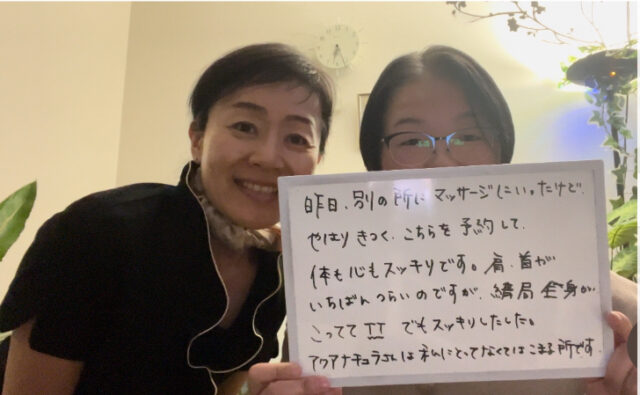 昨日、別の所にマッサージにいったけど、
やはりきつく、こちらを予約して、
体も心もスッキリです。肩、首が
いちばんつらいのですが、結局全身が
こってて TT でもスッキリしたした。
アクアナチュラさんは私にとってなくてはこまる所です。